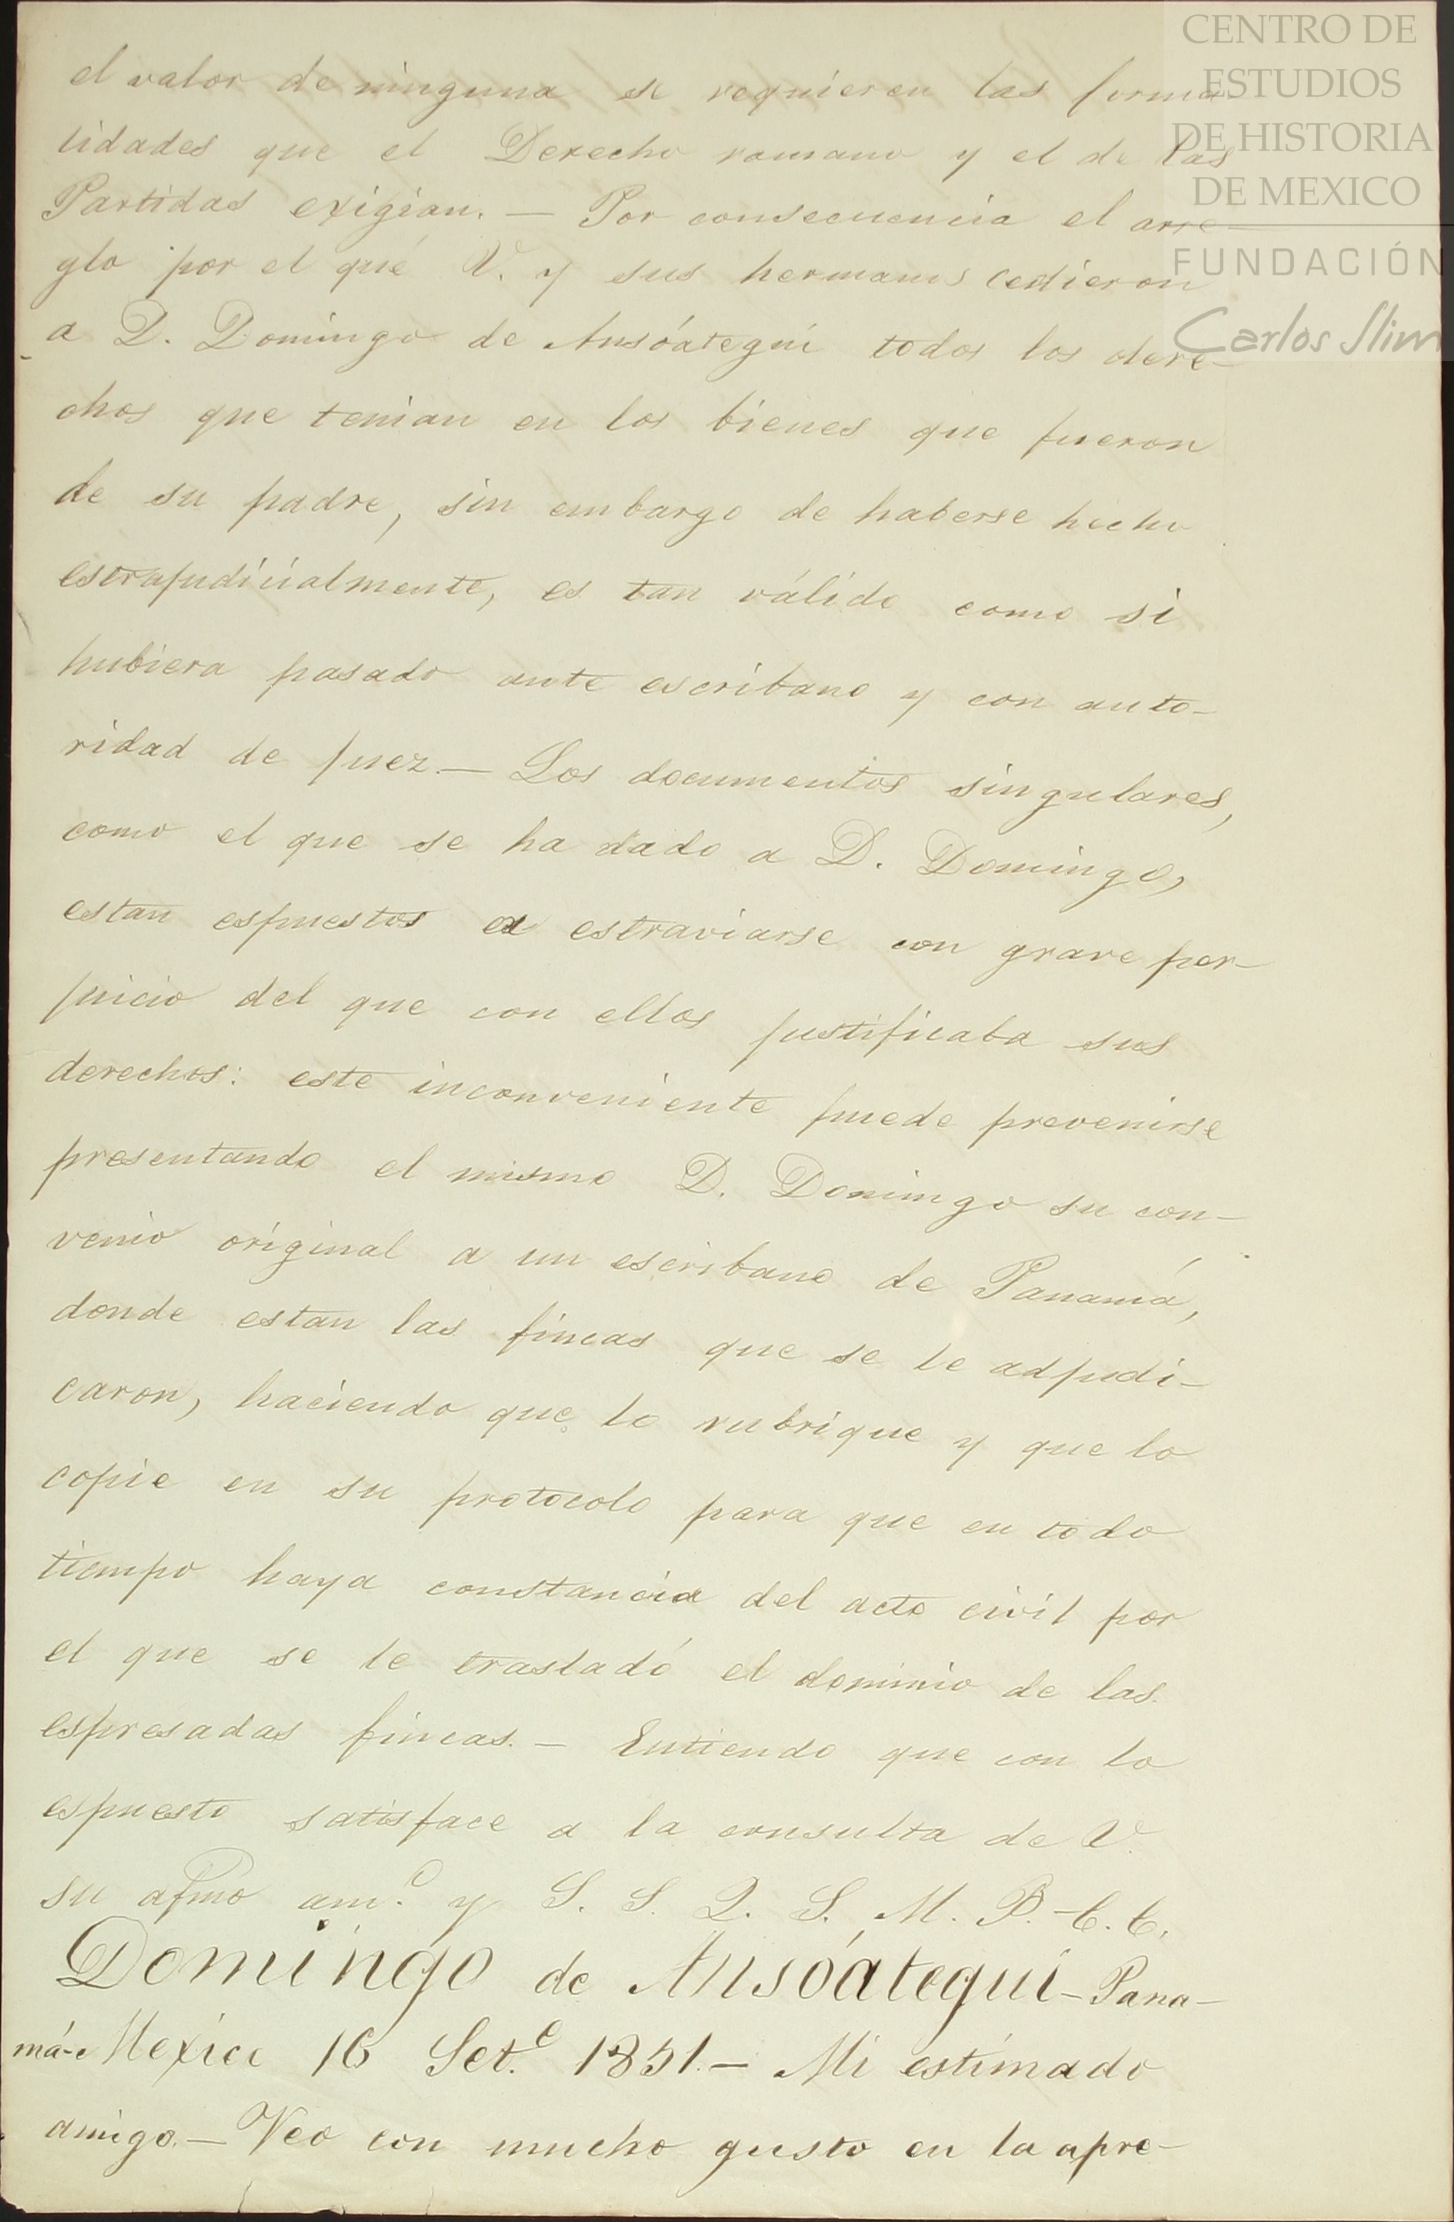 CENTRO DE
ESTUDIOS
DE HISTORIA
DE MEXICO
FUNDACIÓN
Carlos Slim
el valor de ninguna se requieren las forma-
lidades que el Derecho romano y el de las
Partidas exigian. — Por consecuencia el arre-
glo por el qué V. y sus hermanos cedieron
a D. Domingo de Ansóategui todos los dere-
chos que tenian en los bienes que fueron
de su padre, sin embargo de haberse hecho
estrajudicialmente, es tan válido como si
hubiera pasado ante escribano y con auto-
ridad de juez. — Los documentos singulares,
como el que se ha dado a D. Domingo,
estan espuestos a estraviarse con grave per-
juicio del que con ellos justificaba sus
derechos: este inconveniente puede prevenirse
presentando el mismo D. Domingo su con-
venio original a un escribano de Panamá,
donde estan las fincas que se le adjudi-
caron, haciendo que lo rubrique y que lo
copie en su protocolo para que en todo
tiempo haya constancia del acto civil por
el que se le trasladó el dominio de las
espresadas fincas. — Entiendo que con lo
espuesto satisface a la consulta de V.
su afmo am.º y S. S. Q. S. M. B. — C. C.
Domingo de Ansóategui — Pana-
má — Mexico 16 Set.e 1851. — Mi estimado
amigo. — Veo con mucho gusto en la apre-